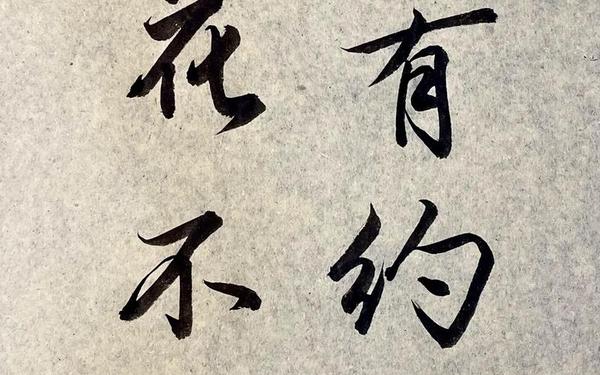 有约
花不